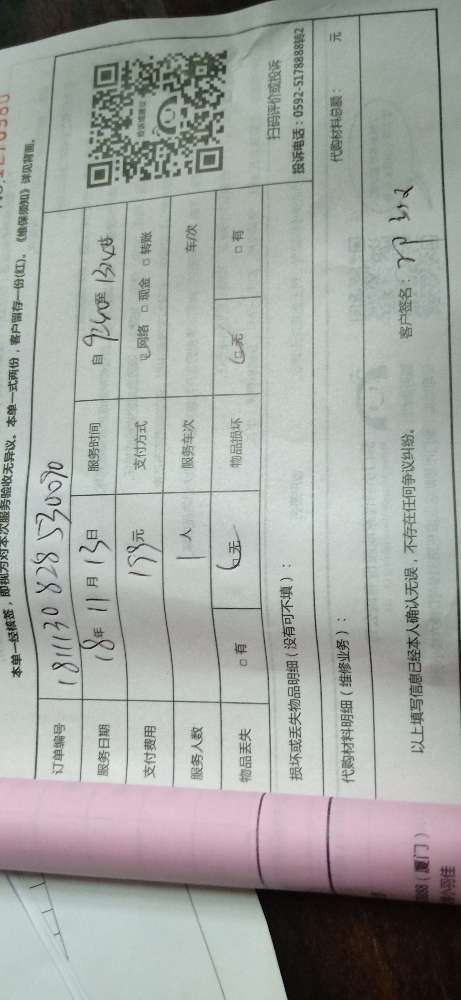 本单一经核签，即视为对本次服务验收无异议。本单一式两份，客户留存一份(红)。《维保须知》详见背面。
订单编号 1811130828530070
服务日期 18年 11月 13日 服务时间 自 9:40 至
支付费用 元 支付方式 ☑网络 □现金 □转账
服务人数 1人 服务车次 车/次
物品丢失 □有 ☑无 物品损坏 ☑无 □有
损坏或丢失物品明细（没有可不填）：
扫码评价或投诉
投诉电话：0592-5178888转2
代购材料明细（维修业务）：
代购材料总额： 元
以上填写信息已经本人确认无误，不存在任何争议纠纷。 客户签名：
（厦门）